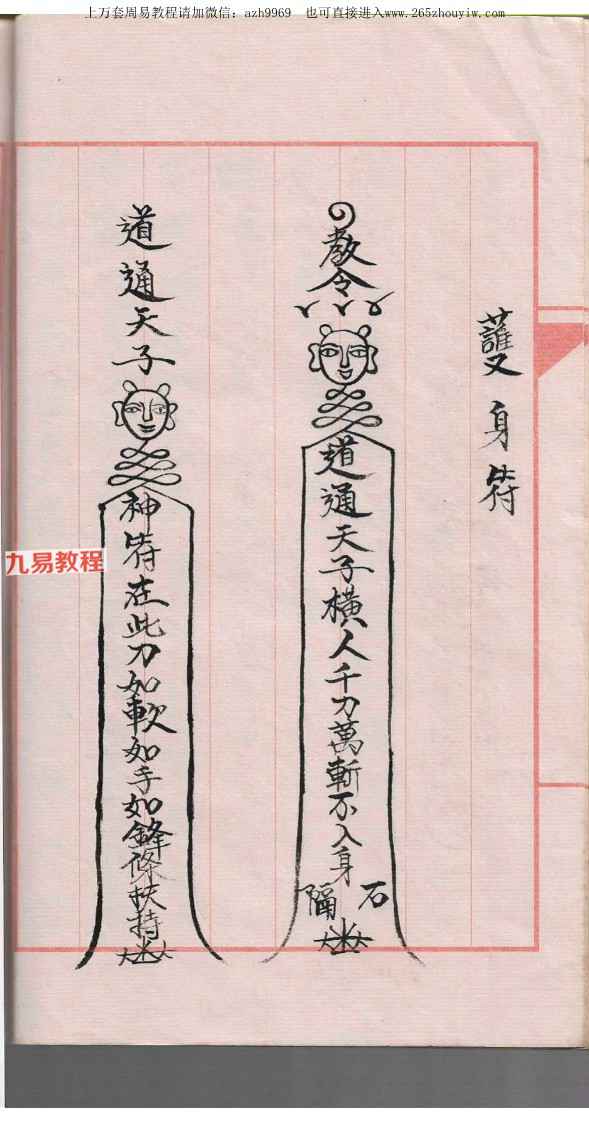 上万套周易教程请加微信：azh9969　也可直接进入www.265zhouyiw.com
護身符
教令
道通天子橫人千刀萬斬不入身
石
隔
道通天子
神符在此刀如軟如手如鋒條扶持
九易教程